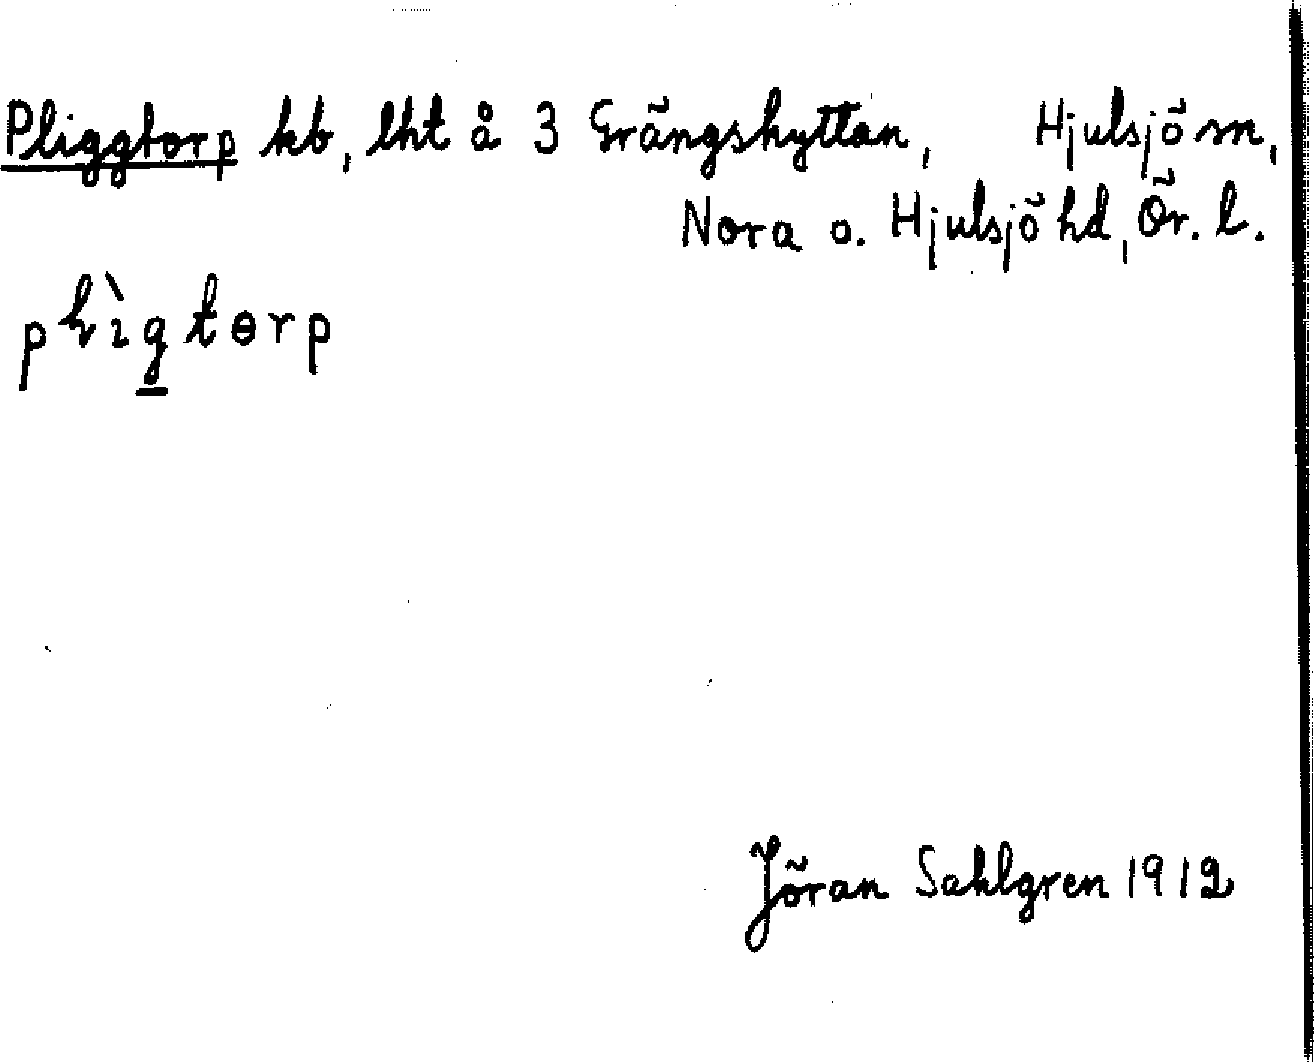 Pliggtorp hb, lht å 3 Grängshyttan, Hjulsjö sn,
Nora o. Hjulsjö hd, Ör. l.
plìgtɵrp
Jöran Sahlgren 1912